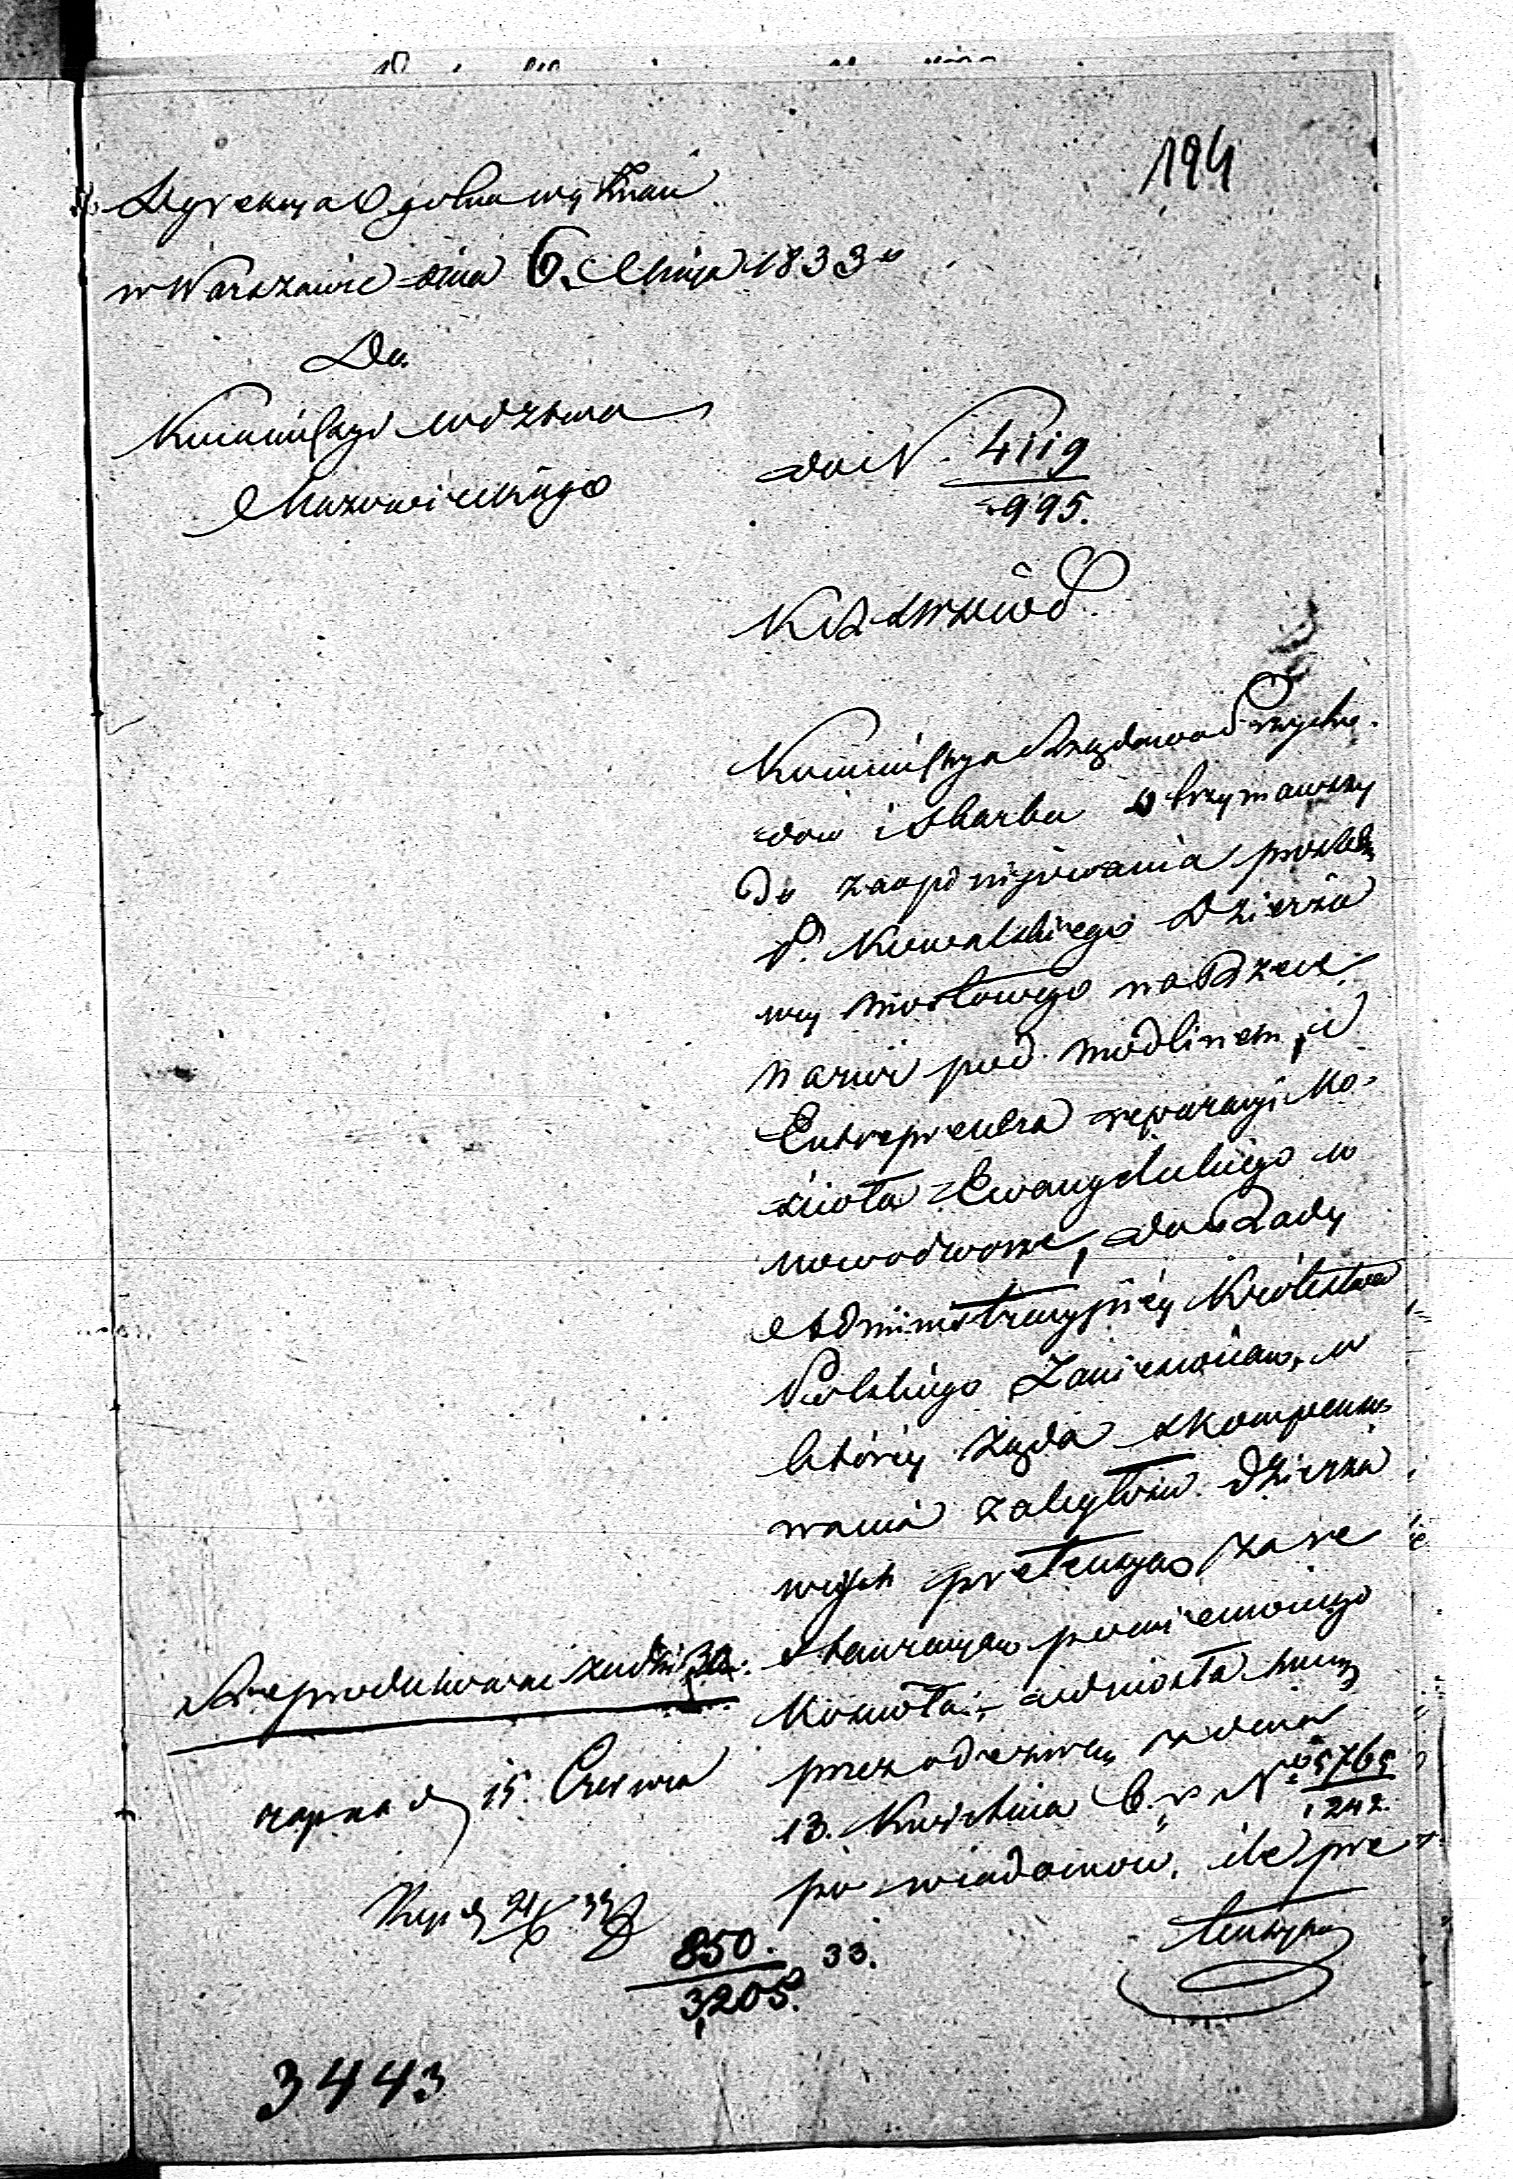 194
Dyrekcya Ogólna wyznań
w Warszawie dnia 6. Maja 1833 r
Do
Kommissyi Wdztwa
Mazowieckiego
do N. 4119
995.
Kommissya Rządowa Przycho-
dów i Skarbu otrzymawszy
do zaopiniowania prozbę
P. Kowalskiego Dzierża
wcy mostowego na Rzece
Narwi pod Modlinem, i
Entreprenera reparacyi Ko-
ścioła Ewangelickiego w
Nowodworze, do Rady
Administracyjnéy Królestwa
Polskiego zaniesioną, w
któréy żąda skompenso
wania zaległości dzierża
wnych pretensyą za re
stauracyą pomienionego
Kościoła; odniosła się
przez odezwę z dnia
13. Kwietnia b. r. No 5765
1242.
po wiadomość, ile pre
tensya
Zreprodukować za dni 30.
zapna d 15. Czerwca
Rep d 21/6 33
850. 33.
3,205.
3443